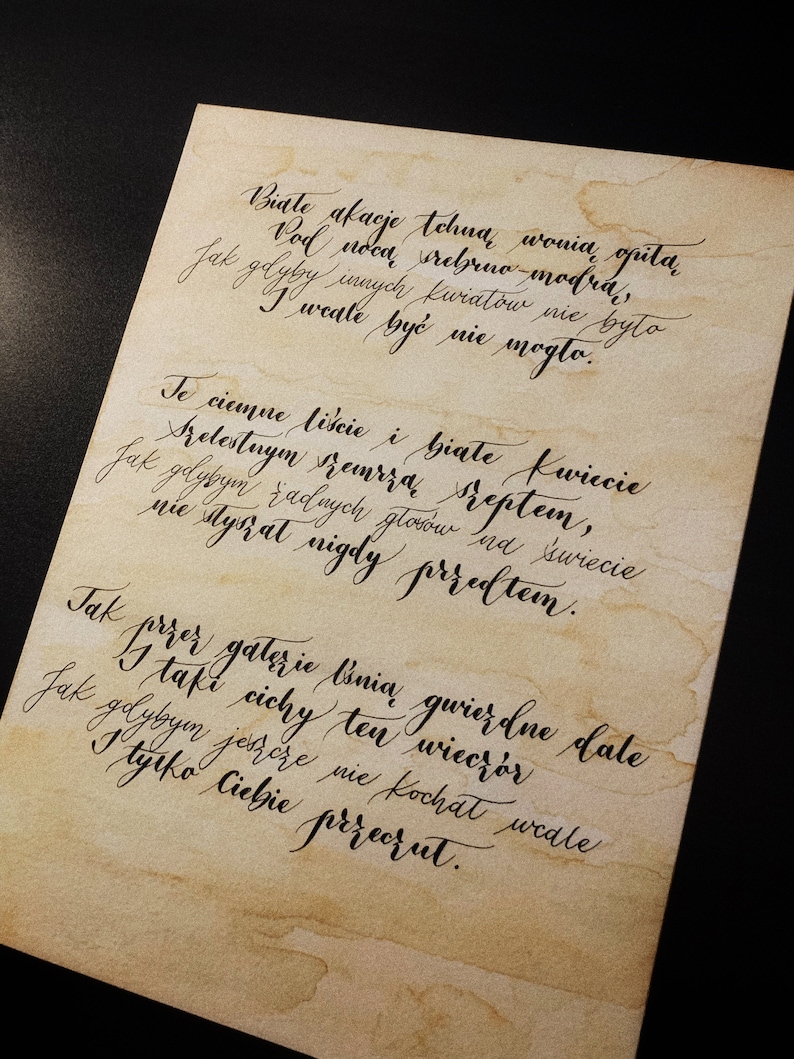 Białe akacje tchną wonią opitą
Pod nocą srebrno-modrą,
Jak gdyby innych kwiatów nie było
I wcale być nie mogło.
Te ciemne liście i białe kwiecie
Szelestnym szemrzą szeptem,
Jak gdybym żadnych głosów na świecie
nie słyszał nigdy przedtem.
Tak przez gałęzie lśnią gwiezdne dale
I taki cichy ten wieczór
Jak gdybym jeszcze nie kochał wcale
I tylko Ciebie przeczuł.